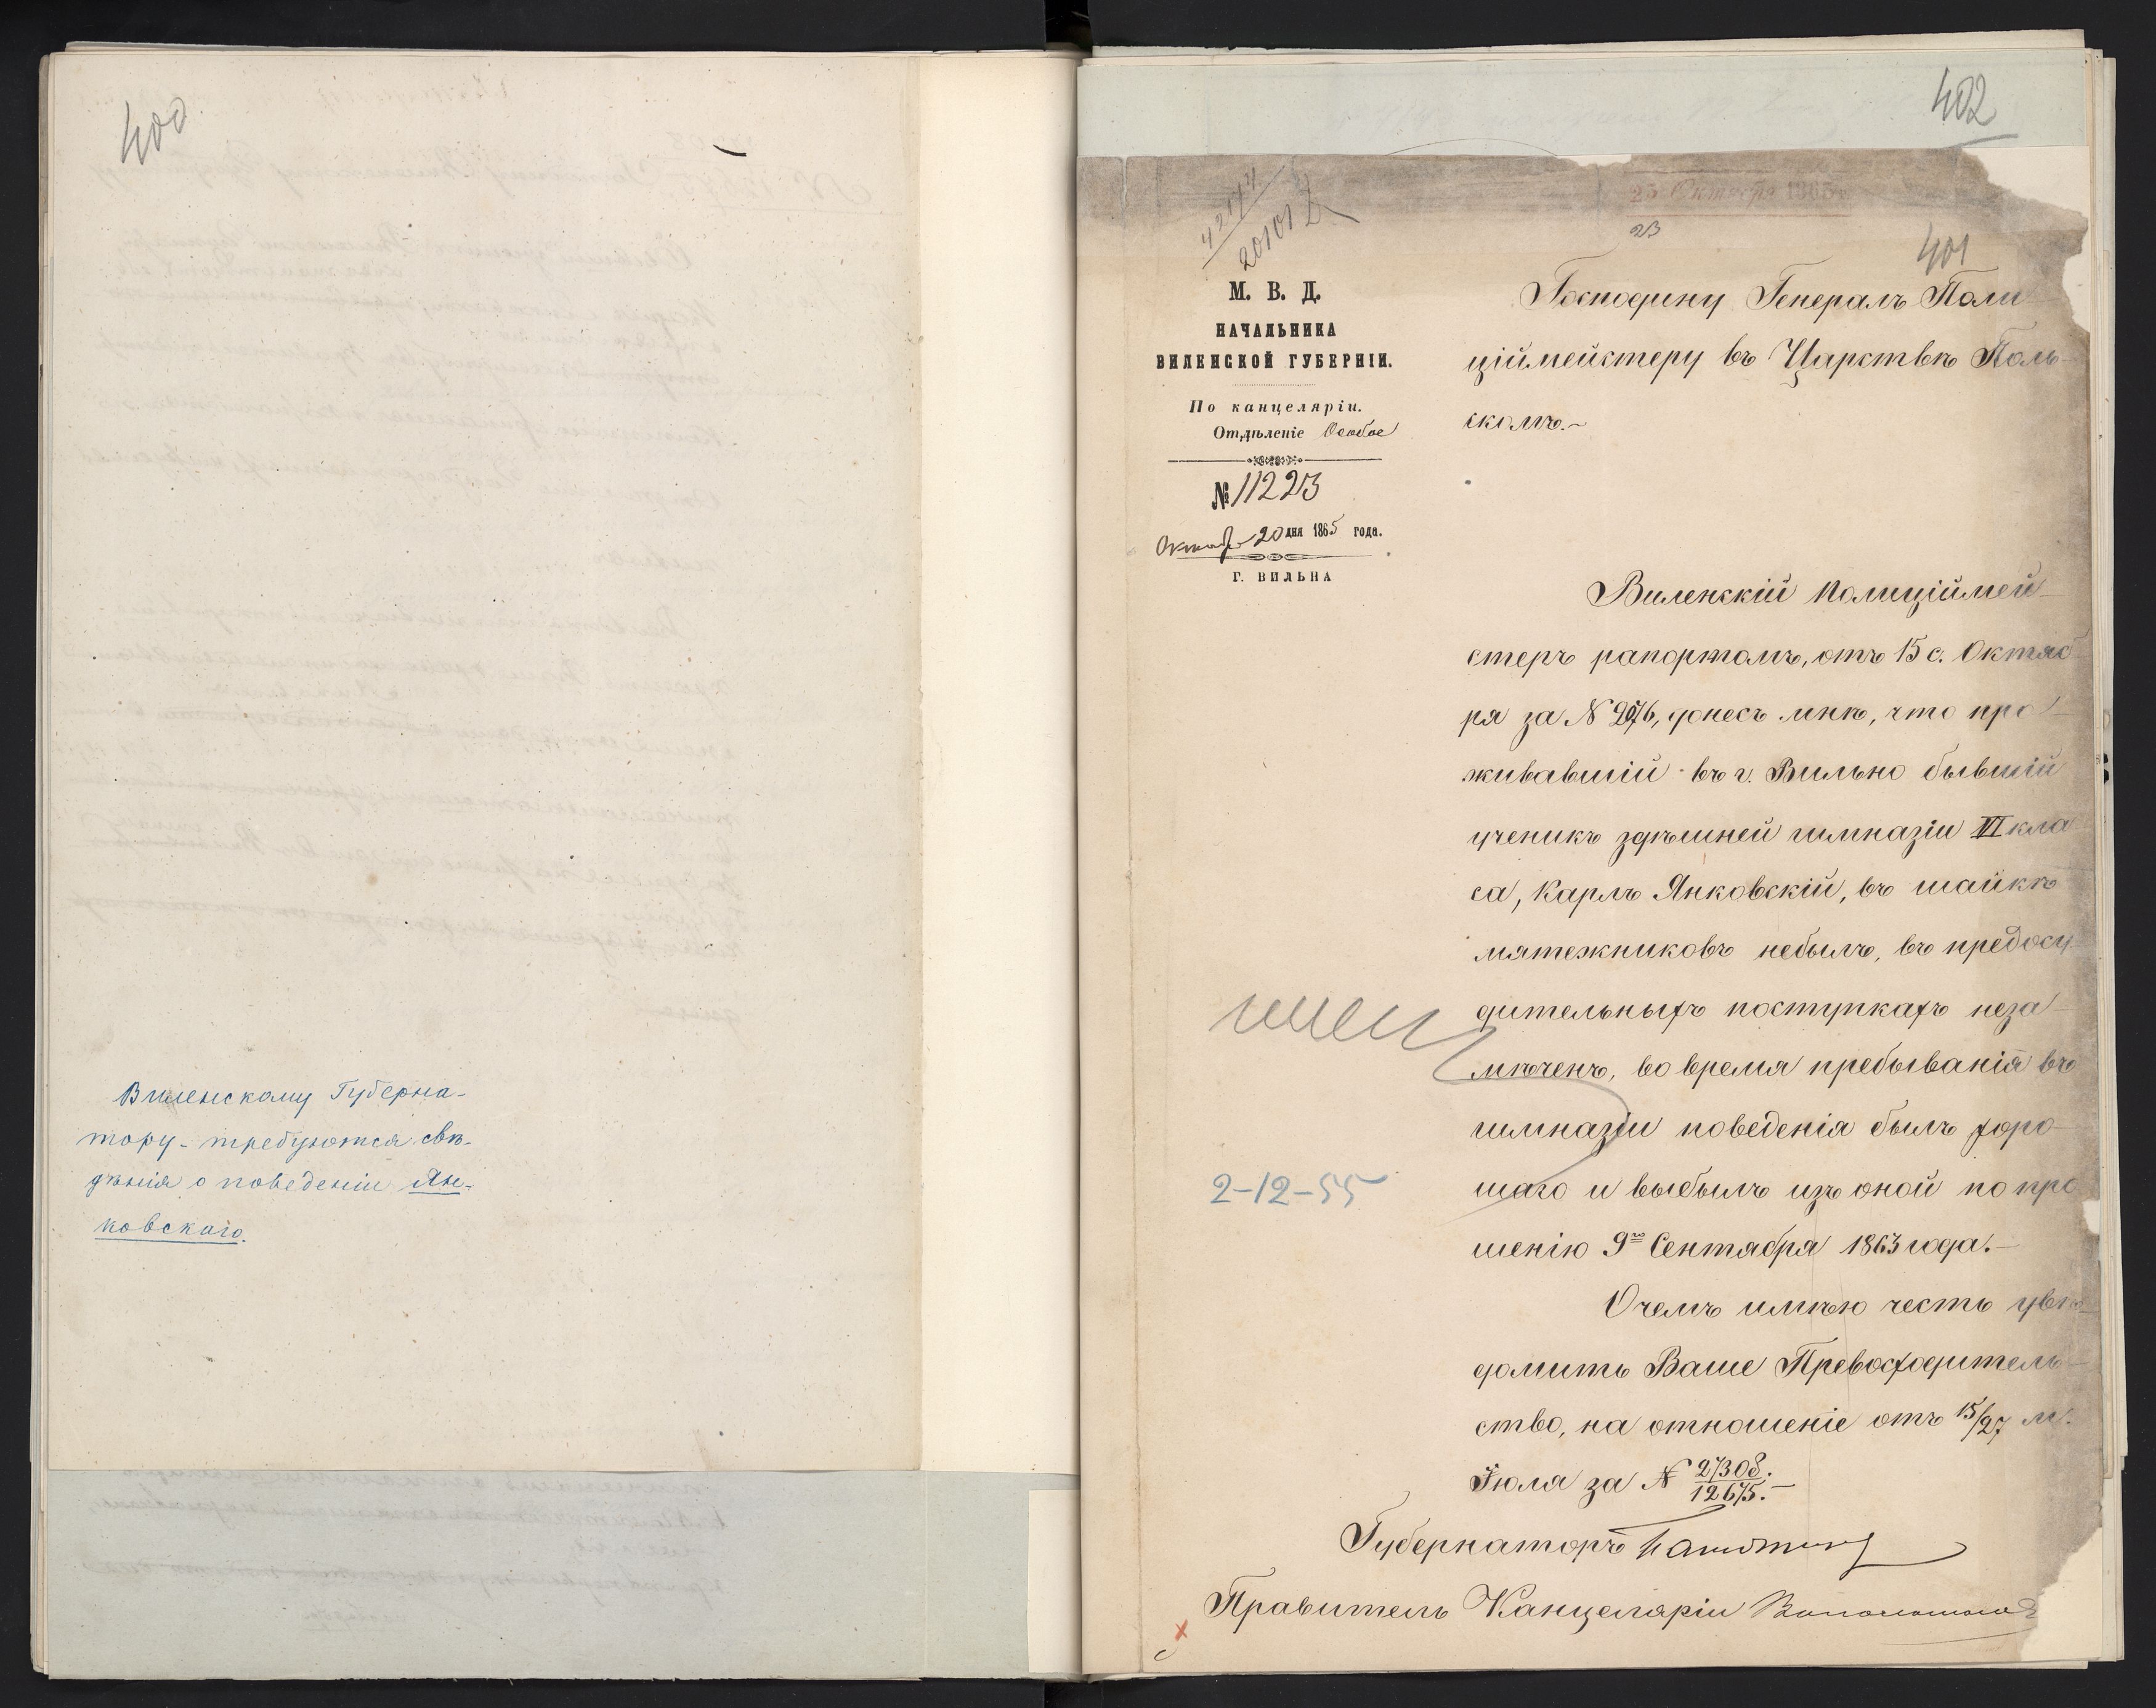 400
Виленскому Губерна-
тору - требуются свѣ-
дѣнія о поведеніи Ян-
ковскаго.
402
42144
20101
25 Октября 1865
23
401
М. В. Д.
НАЧАЛЬНИКА
ВИЛЕНСКОЙ ГУБЕРНІИ.
По канцеляріи.
Отдѣленіе Особое
№ 11223
Октября 20 дня 1865 года.
Г. ВИЛЬНА
Господину Генералъ Поли
ціймейстеру въ Царствѣ Поль-
скомъ.~
Виленскій Полиціймей-
стеръ рапортомъ, отъ 15 с. Октяб
ря за № 2976, донесъ мнѣ, что про-
живавшій въ г. Вильно бывшій
ученикъ здѣшней гимназіи VI кла
са, Карлъ Янковскій, въ шайкѣ
мятежниковъ небылъ, въ предосу
дительныхъ поступкахъ неза-
мѣченъ, во время пребыванія въ
гимназіи поведенія былъ хоро-
шаго и выбылъ изъ оной по про
шенію 9го Сентября 1863 года.-
Очемъ имѣю честь увѣ-
домить Ваше Превосходитель-
ство, на отношеніе отъ 15/27 м.
Іюля за № 27308./12675.-
2-12-55
Губернаторъ
Правитель Канцеляріи